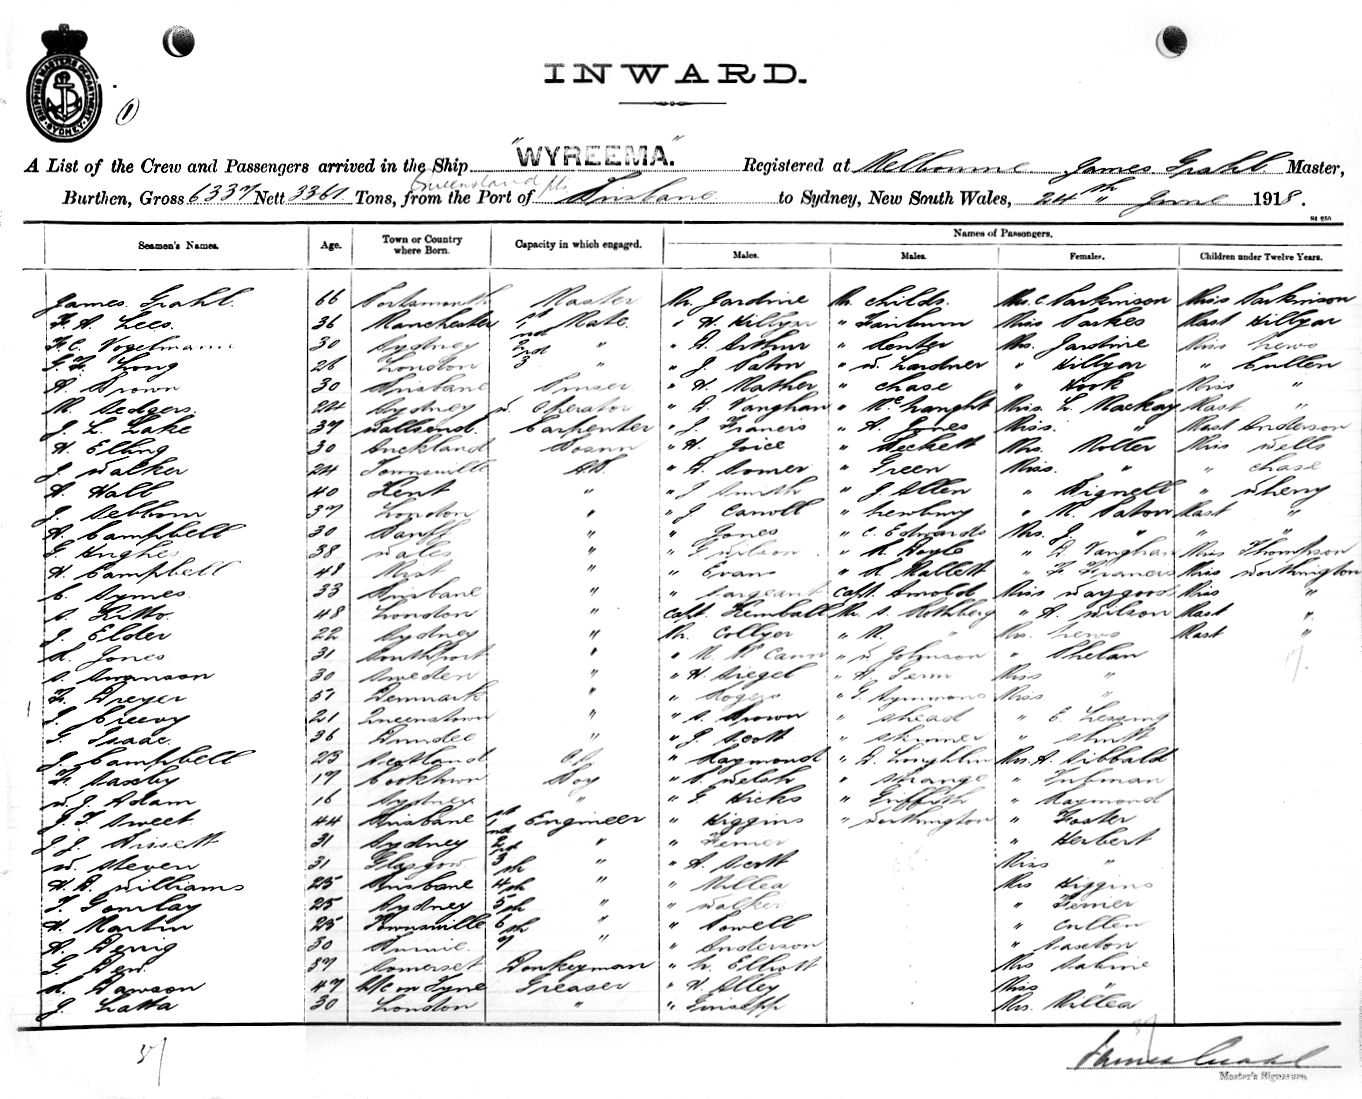 SHIPPING MASTERS DEPARTMENT SYDNEY
1
INWARD.
A List of the Crew and Passengers arrived in the Ship "WYREEMA." Registered at Melbourne James Grahl Master,
Queensland pts
Burthen, Gross 6337 Nett 3361 Tons, from the Port of Brisbane to Sydney, New South Wales, 24th June 1918.
Seamen's Names. Age. Town or Country where Born. Capacity in which engaged. Names of Passengers.
Males. Males. Females. Children under Twelve Years.
James Grahl 66 Portsmouth Master Mr. Jardine Mr. Childs. Mrs. C. Parkinson Miss Parkinson
F. A. Lees 36 Manchester 1st Mate " H. Hillyar " Fairburn Miss Parkes Mast Hillyar
F. C. Vogelmann 30 Sydney 2nd " " A. Arthur " Senter Mrs. Jardine Miss Hews
G. F. Long 26 London 3rd " " J. Paton " W. Lardner " Hillyar " Cullen
A. Brown 30 Brisbane Purser " H. Mather " Chase " Hook Miss "
M. Sedgers 24 Sydney W. Operator " A. Vaughan " McNaught Miss. L. Mackay Mast "
J. L. Lake 37 Carpenter " J. Francis " A. Jones Miss. " Mast Anderson
H. Elling 30 Auckland Bosun " H. Joice " Beckett Mrs. Rolter Miss Wells
J. Walker 24 Townsville AB. " A. Somer " Green Miss. " " Chase
A. Hall 40 Kent " " J. Smith " J. Allen " Bignell " Wherry
J. Sebborn 37 London " " J. Carroll " Newbury " M. Paton Mast "
A. Campbell 30 Banff " " Jones " C. Edwards Mrs. J. " "
G. Hughes 38 Wales " " F. Wilson " A. Doyle " A. Vaughan Miss Thompson
H. Campbell 48 " " Evans " A. Mallett " F. Francis Miss Worthington
C. Symes 33 Brisbane " " Sargeant Capt. Arnold Miss Waygood Miss "
A. Litto 48 London " Capt. Kimball Mr. S. Rothberg " A. Wilson Mast "
J. Elder 22 Sydney " Mr. Collyer " M. " Mrs. Hews Mast "
A. Jones 31 Southport " " M. McCann " W. Johnson " Phelan 17.
A. Swanson 30 Sweden " " H. Siegel Miss "
F. Dreyer 51 Denmark " " Rogers " F. Symmons Miss "
J. Creevy 21 Queenstown " " A. Brown " Shead " E. Lessing
G. Isaac 36 Dundee " " J. Scott " Skinner
J. Campbell 23 Scotland O.S. " Raymond " A. Loughlin Mrs. A. Sibbald
F. Saxby 17 Cooktown Boy " A. Welsh " Strange
W. J. Adam 16 Sydney " " G. Hicks " Griffith " Raymond
J. F. Sweet 44 Brisbane 1st Engineer " Higgins " Worthington " Foster
J. J. Bissett 31 Sydney 2nd " " Ferrier " Herbert
W. Steven 31 Glasgow 3rd " " A. Scott Miss "
H. A. Williams 25 Brisbane 4th " " Millea Mrs Higgins
T. Gomlay 25 Sydney 5th " " Walker " Ferrier
A. Martin 25 Townsville 6th " " Powell " Cullen
A. Derrig 30 7 " " Anderson " Saxton
G. Dew 37 Somerset Donkeyman " H. Elliott Mrs Sabine
A. Dawson 47 N/C on Tyne Greaser " H. Alley Miss "
J. Latta 30 London " " Mrs. Millea
37
37
James Grahl
Master's Signature.